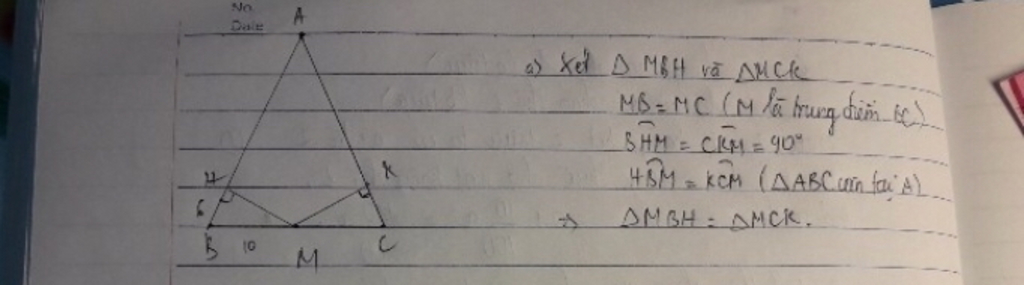 No.
Date
A
H
K
6
B
10
M
C
a) Xét Δ MBH và ΔMCK
MB = MC (M là trung điểm BC)
BHM = CKM = 90°
HBM = KCM (ΔABC cân tại A)
=> ΔMBH = ΔMCK.